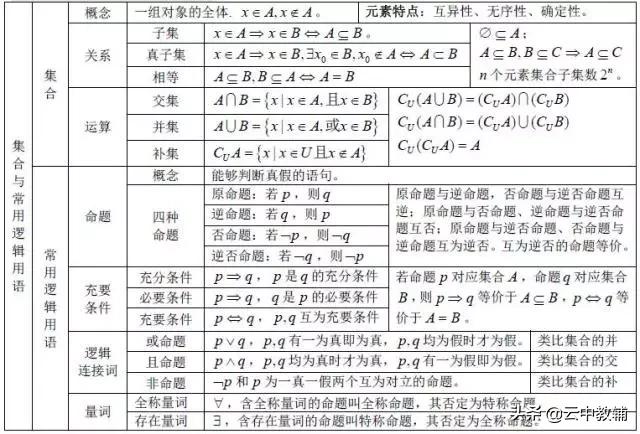 集合与常用逻辑用语
集合
概念 一组对象的全体. x∈A, x∉A。 元素特点：互异性、无序性、确定性。
关系
子集 x∈A⇒x∈B⇔A⊆B。
真子集 x∈A⇒x∈B,∃x₀∈B,x₀∉A⇔A⊂B
相等 A⊆B,B⊆A⇔A=B
∅⊆A；
A⊆B,B⊆C⇒A⊆C
n个元素集合子集数2ⁿ。
运算
交集 A∩B={x|x∈A,且x∈B}
并集 A∪B={x|x∈A,或x∈B}
补集 C_U A={x|x∈U且x∉A}
C_U(A∪B)=(C_U A)∩(C_U B)
C_U(A∩B)=(C_U A)∪(C_U B)
C_U(C_U A)=A
常用逻辑用语
命题
概念 能够判断真假的语句。
四种
命题
原命题：若p，则q
逆命题：若q，则p
否命题：若¬p，则¬q
逆否命题：若¬q，则¬p
原命题与逆命题，否命题与逆否命题互
逆；原命题与否命题、逆命题与逆否命
题互否；原命题与逆否命题、否命题与
逆命题互为逆否。互为逆否的命题等价。
充要
条件
充分条件 p⇒q，p是q的充分条件
必要条件 p⇒q，q是p的必要条件
充要条件 p⇔q，p,q互为充要条件
若命题p对应集合A，命题q对应集合
B，则p⇒q等价于A⊆B，p⇔q等
价于A=B。
逻辑
连接词
或命题 p∨q，p,q有一为真即为真，p,q均为假时才为假。 类比集合的并
且命题 p∧q，p,q均为真时才为真，p,q有一为假即为假。 类比集合的交
非命题 ¬p和p为一真一假两个互为对立的命题。 类比集合的补
量词
全称量词 ∀，含全称量词的命题叫全称命题，其否定为特称命题。
存在量词 ∃，含存在量词的命题叫特称命题，其否定为全称命题。
头条 @云中教辅